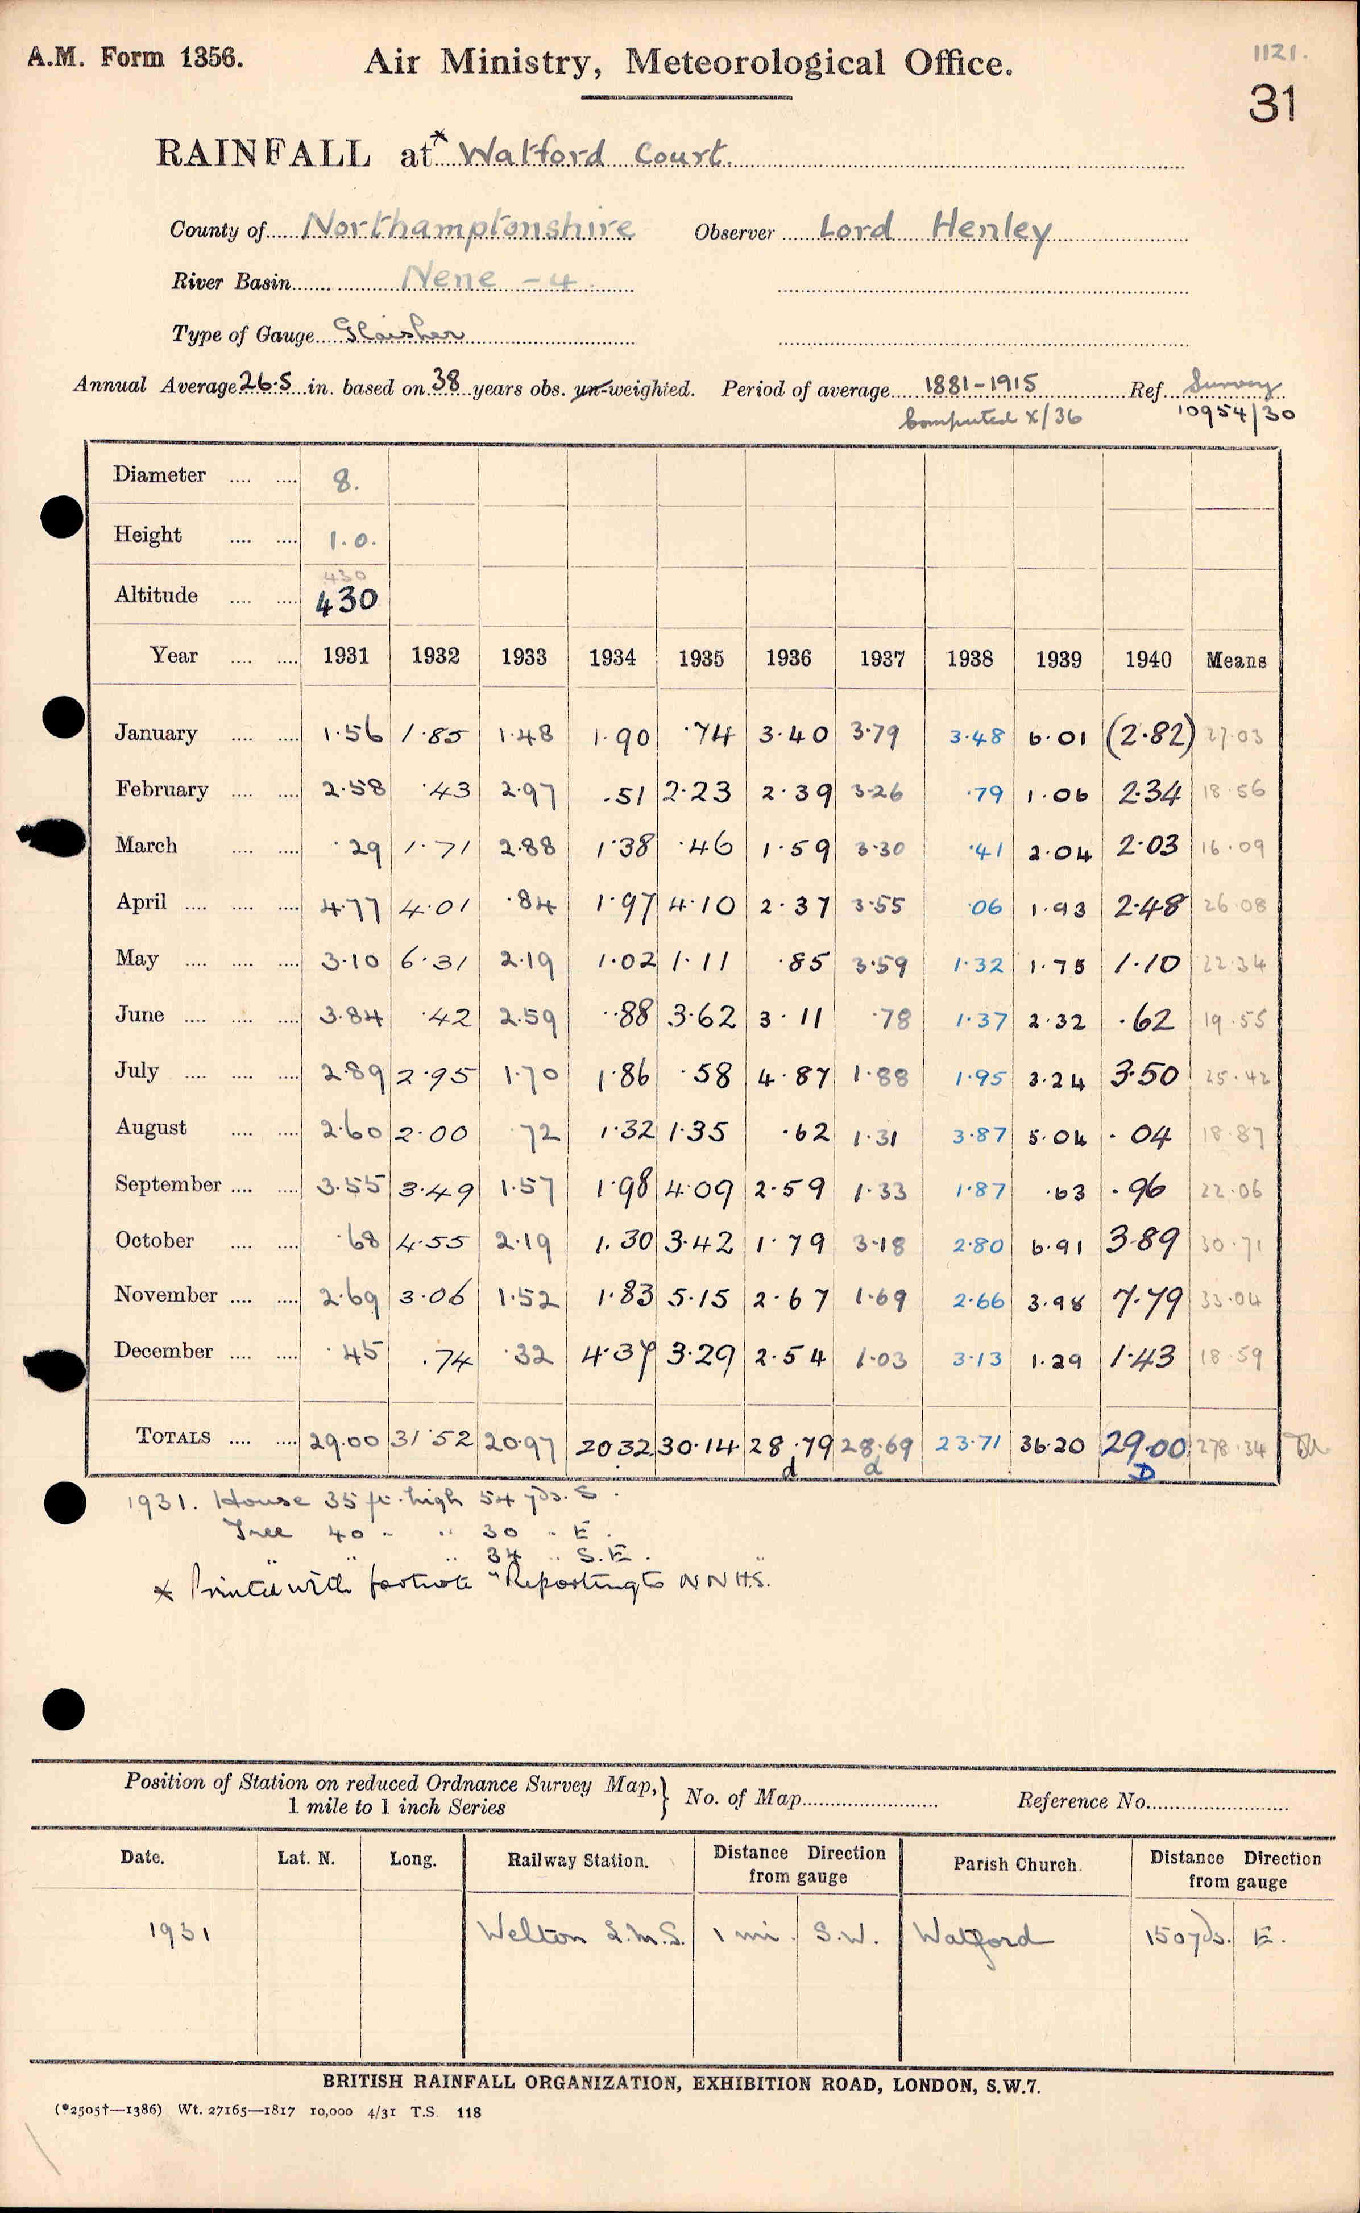 A.M. Form 1356.
Air Ministry, Meteorological Office.
1121.
31
RAINFALL at * Watford Court.
County of Northamptonshire Observer Lord Henley
River Basin Nene - 4.
Type of Gauge Glaisher
Annual Average 26.5 in. based on 38 years obs. un-weighted. Period of average 1881-1915 Ref. Survey
Computed X/36 10954/30
Diameter .... .... 8.
Height .... .... 1.0.
430
Altitude .... .... 430
Year .... .... 1931 1932 1933 1934 1935 1936 1937 1938 1939 1940 Means
January .... .... 1.56 1.85 1.48 1.90 .74 3.40 3.79 3.48 6.01 (2.82) 27.03
February .... .... 2.58 .43 2.97 .51 2.23 2.39 3.26 .79 1.06 2.34 18.56
March .... .... .29 1.71 2.88 1.38 .46 1.59 3.30 .41 2.04 2.03 16.09
April .... .... .... 4.77 4.01 .84 1.97 4.10 2.37 3.55 .06 1.93 2.48 26.08
May .... .... .... 3.10 6.31 2.19 1.02 1.11 .85 3.59 1.32 1.75 1.10 22.34
June .... .... .... 3.84 .42 2.59 .88 3.62 3.11 .78 1.37 2.32 .62 19.55
July .... .... .... 2.89 2.95 1.70 1.86 .58 4.87 1.88 1.95 3.24 3.50 25.42
August .... .... 2.60 2.00 .72 1.32 1.35 .62 1.31 3.87 5.04 .04 18.87
September .... .... 3.55 3.49 1.57 1.98 4.09 2.59 1.33 1.87 .63 .96 22.06
October .... .... .68 4.55 2.19 1.30 3.42 1.79 3.18 2.80 6.91 3.89 30.71
November .... .... 2.69 3.06 1.52 1.83 5.15 2.67 1.69 2.66 3.98 7.79 33.04
December .... .... .45 .74 .32 4.37 3.29 2.54 1.03 3.13 1.29 1.43 18.59
TOTALS .... .... 29.00 31.52 20.97 20.32 30.14 28.79 28.69 23.71 36.20 29.00 278.34
d d D
1931. House 35 ft. high 54 yds. S.
Tree 40 " " 30 " E.
" " " 34 " S.E.
* Printed with footnote "Reporting to N N H S."
Position of Station on reduced Ordnance Survey Map, } No. of Map Reference No.
1 mile to 1 inch Series
Date. Lat. N. Long. Railway Station. Distance Direction from gauge Parish Church. Distance Direction from gauge
1931 Welton L.M.S. 1 mi. S.W. Watford 150 yds. E.
BRITISH RAINFALL ORGANIZATION, EXHIBITION ROAD, LONDON, S.W.7.
(*2505†—1386) Wt. 27165—1817 10,000 4/31 T.S. 118